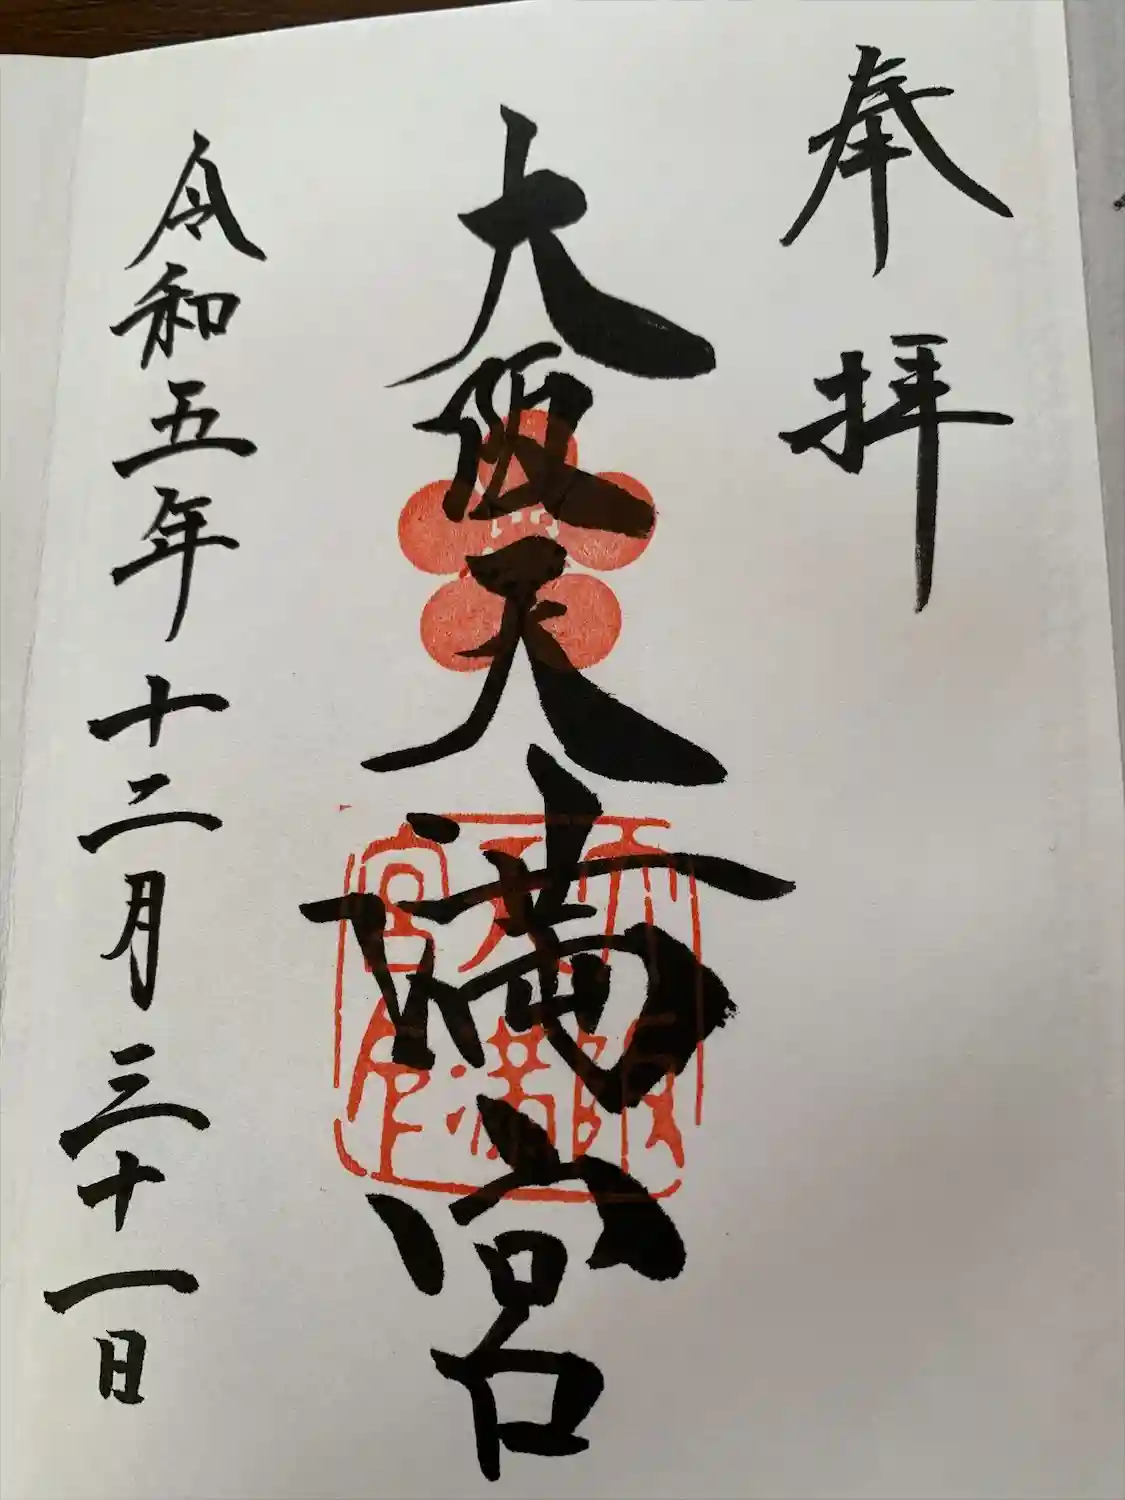 奉拝
大阪天満宮
大阪
天満
宮印
令和五年十二月三十一日